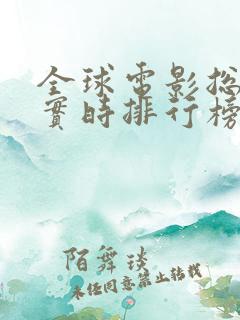 全球电影总
實時排行榜
陌舞琰
未经同意禁止转载